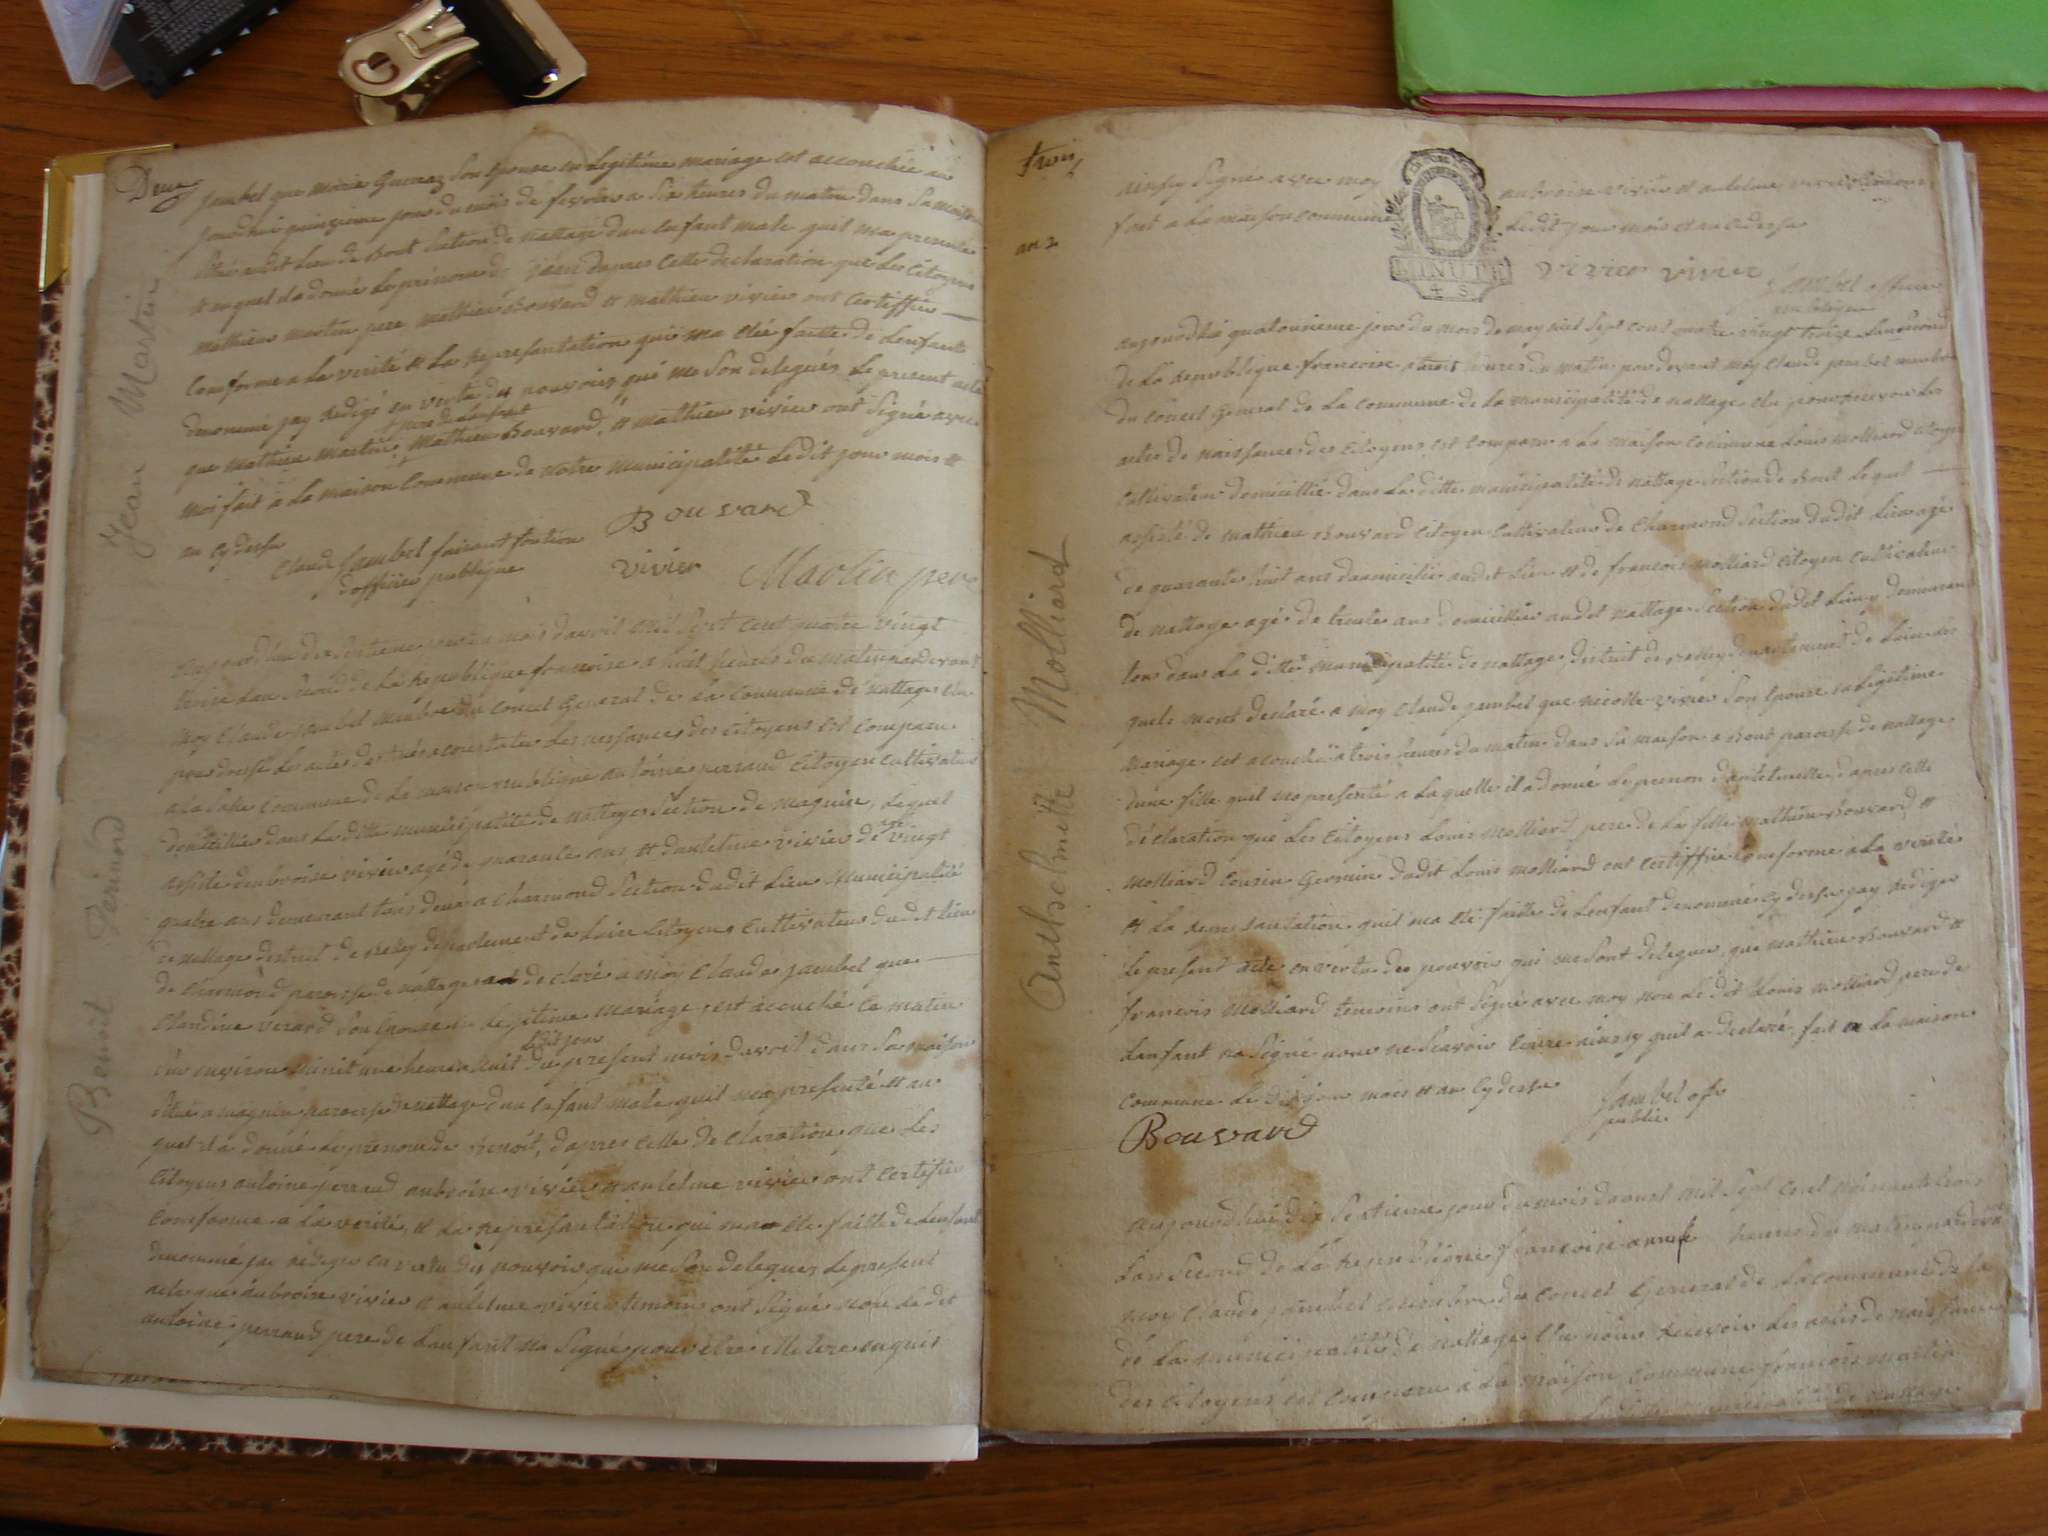 Deux
jambel que marie Guerraz son epouse en legitime mariage est accouchée au
jourdhui quinzieme jour du mois de fevrier a six heures du matin dans sa maison
situé audit lieu de bout section de nattage dun enfant male quil ma presenté
et auquel il a donné le prénom de jean dapres cette declaration que les citoyens
mathieu martin pere mathieu Bouvard et mathieu vivier ont certiffier
conforme a la verité et la representation qui ma été faitte de lenfant
denommé jay redigé en vertu des pouvoirs qui me son delegués le present acte
que mathieu martin pere de lenfant mathieu Bouvard, et mathieu vivier ont signé avec
moi fait a la maison commune de notre municipalité ledit jour mois et
an cydessu
Claude Jambel faisant fontion
dofficier publique
Bouvard
vivier
Martin pere
Jean Martin
aujourdhui dix septieme jour du mois davril mil sept cent quatre vingt
treize lan second de la republique francoise a huit heures du matin pardevant
moy Claude jambel membre du conseil General de la commune de nattage élu
pour dresser les actes destinés a constater les naissances des citoyens est comparu
a la salle commune de la maison publique antoine perraud citoyen cultivateur
domicillié dans la ditte municipalité de nattage section de magnin, lequel
assisté dambroise vivier agé de quarante ans et dantelme vivier agé de vingt
quatre ans demeurant tous deux a charmond section dudit lieu municipalité
de nattage district de belley département de lain citoyens cultivateur dudit lieu
de charmond paroisse de nattage a declaré a moy Claude jambel que
Claudine verard son epouse en legitime mariage est accouché ce matin
environ une heure ledit jour du present mois davril dans sa maison
situé a magnin paroisse de nattage dun enfant male quil ma presenté et au
quel il a donné le prenom de benoit, dapres cette declaration que les
citoyens antoine perraud ambroise vivier et antelme vivier ont certifier
conforme a la verité, et la representation qui ma été faitte de lenfant
denommé jai rediger en vertu des pouvoirs qui me son deleguez le present
acte que ambroise vivier et antelme vivier temoins ont signé non ledit
antoine perraud pere de lenfant na signé pour être illetere enquis
Benoit Perinod
trois
an 2
ainsy signé avec moy ambroise vivier et antelme vivier temoins
fait a la maison commune ledit jour mois et an cidessu
MINUTE
4 S
vivier vivier
aujourdhui quatorzieme jour du mois de may mil sept cent quatre vingt treize lan second
de la republique francoise a trois heures du matin pardevant moy Claude jambel membre
du conseil General de la commune de la municipalité de nattage élu pour recevoir les
actes de naissances des citoyens est comparu a la maison commune Louis molliard citoyen
cultivateur domicillié dans la ditte municipalité de nattage section de bout lequel
assisté de mathieu Bouvard citoyen cultivateur de charmond section dudit lieu agé
de quarante huit ans domicilié audit lieu et de francois molliard citoyen cultivateur
de nattage agé de trente ans domicillié audit nattage section dudit lieu y demeurant
tous dans la ditte municipalité de nattage district de belley departement de lain les
quels mont declaré a moy Claude jambel que nicolle vivier son epouse en legitime
mariage est acouché a trois heures du matin dans sa maison a bout paroisse de nattage
dune fille quil ma presenté a laquelle il a donné le prenon dantelmette dapres cette
déclaration que les citoyens Louis molliard pere de la fille mathieu Bouvard et
molliard cousin Germain dudit Louis molliard ont certiffié conforme a la verité
et la representation quil ma été faitte de lenfant denommé cy dessu jay rediger
le present acte en vertu des pouvoir qui me sont delegues que mathieu Bouvard et
francois molliard temoins ont signé avec moy non le dit Louis molliard pere de
lenfant na signé pour ne scavoir ecrire ainsy quil a declaré fait en la maison
commune le dit jour mois et an cydessu
Jambel offi
public
Bouvard
Anthelmette Molliard
aujourdhui dix septieme jour du mois daoust mil sept cent nonante trois
lan second de la republique francoise a heures du matin pardevant
moy Claude jambel membre du conseil General de la commune de la
de la municipalité de nattage élu pour recevoir les actes de naissance
des citoyens est comparu a la maison commune francois martin
municipalité de nattage